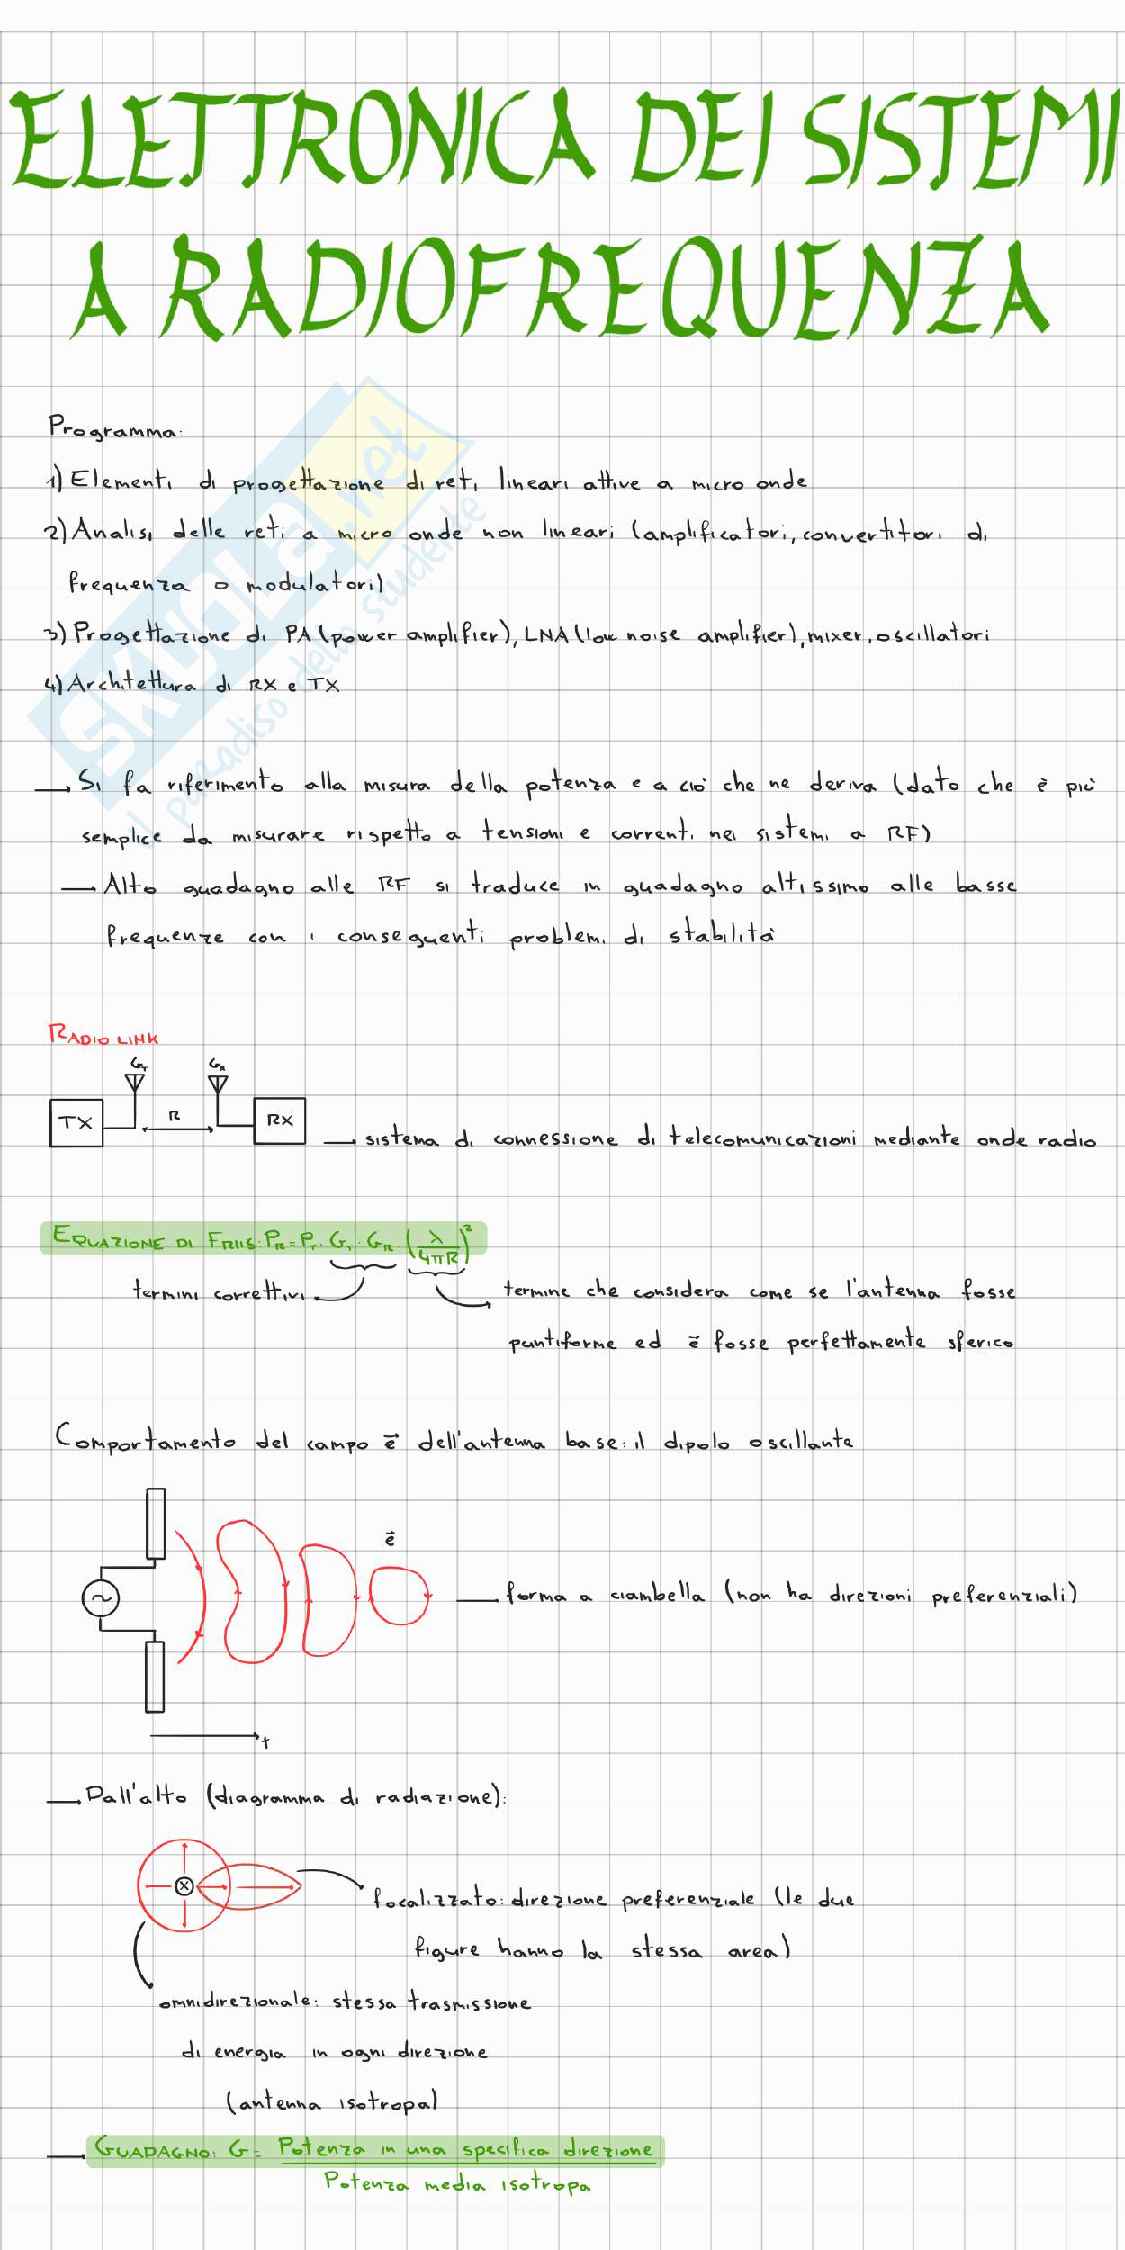 ELETTRONICA DEI SISTEMI
A RADIOFREQUENZA
Programma:
1) Elementi di progettazione di reti lineari attive a micro onde
2) Analisi delle reti a micro onde non lineari (amplificatori, convertitori di
frequenza o modulatori)
3) Progettazione di PA (power amplifier), LNA (low noise amplifier), mixer, oscillatori
4) Architettura di RX e TX
Si fa riferimento alla misura della potenza e a ciò che ne deriva (dato che è più
semplice da misurare rispetto a tensioni e correnti nei sistemi a RF)
Alto guadagno alle RF si traduce in guadagno altissimo alle basse
frequenze con i conseguenti problemi di stabilità
RADIO LINK
G_T G_R
TX R RX
sistema di connessione di telecomunicazioni mediante onde radio
EQUAZIONE DI FRIIS: P_R = P_T · G_T · G_R (λ/4πR)²
termini correttivi
termine che considera come se l'antenna fosse
puntiforme ed e⃗ fosse perfettamente sferico
Comportamento del campo e⃗ dell'antenna base: il dipolo oscillante
e⃗
forma a ciambella (non ha direzioni preferenziali)
t
Dall'alto (diagramma di radiazione):
focalizzato: direzione preferenziale (le due
figure hanno la stessa area)
omnidirezionale: stessa trasmissione
di energia in ogni direzione
(antenna isotropa)
GUADAGNO: G = Potenza in una specifica direzione
Potenza media isotropa
SKUOLA.net
il paradiso dello studente